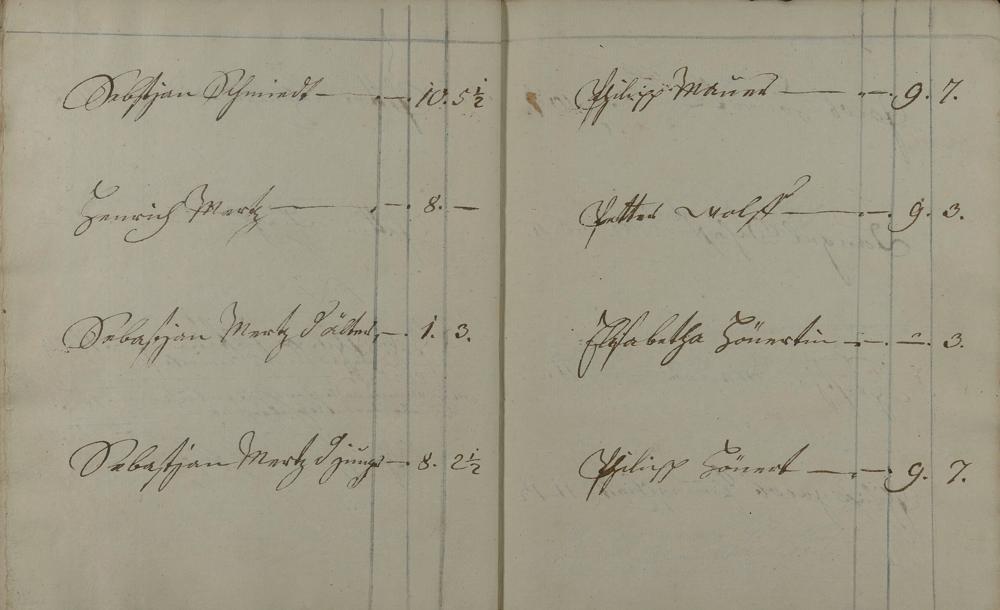 Sebastjan Schmiedt — — . 10. 5½
Henrich Mertz — . — . 8. —
Sebastjan Mertz d älter, — . 1. 3.
Sebastjan Mertz d jüngr — . 8. 2½
Philipp Maüer — . — . 9. 7.
Petter Wolff — . — . 9. 3.
Elisabetha Hönertin — . — . — . 3.
Philipp Hönert — . — . 9. 7.